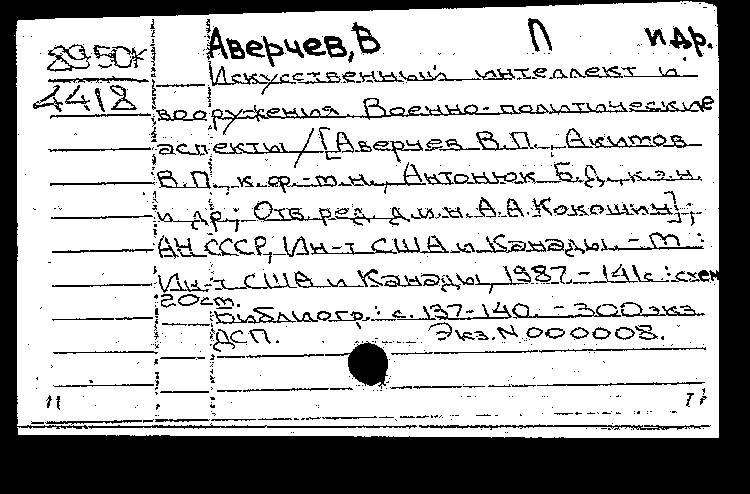 89-50к
4418
Аверчев, В П и др.
Искусственный интеллект и
вооружения. Военно-политические
аспекты / [Аверчев В.П., Акимов
В.П., к.ф.-м.н., Антонюк Б.Д., к.э.н.
и др.; Отв. ред. д.и.н. А.А. Кокошин];
АН СССР, Ин-т США и Канады. - М.:
Ин-т США и Канады, 1987. - 141с.: схем
20 см.
Библиогр.: с. 137-140. - 300 экз.
ДСП. Экз. N 000008.